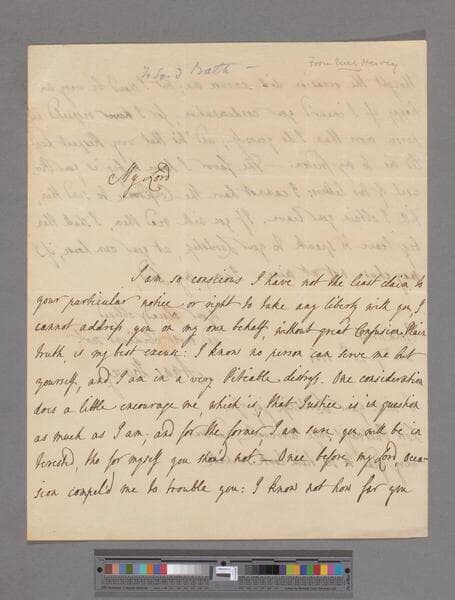 To Lord Bath -
From Mrs Hervey
My Lord
I am so conscious I have not the least claim to
your particular notice or right to take any liberty with you, I
cannot address you on my own behalf, without great Confusion. Plain
truth, is my best excuse: I know no person can serve me but
yourself, and I am in a very Pitieable distress. One consideration
does a little encourage me, which is, that Justice is in question
as much as I am, and for the former, I am sure, you will be in
terested, tho for myself you shou'd not. - Once before, my Lord, occa-
sion compel'd me to trouble you: I know not how far you